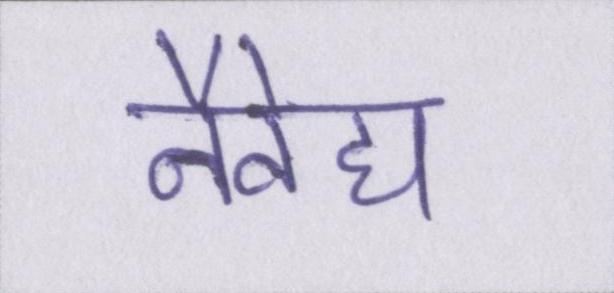 नैवेद्य